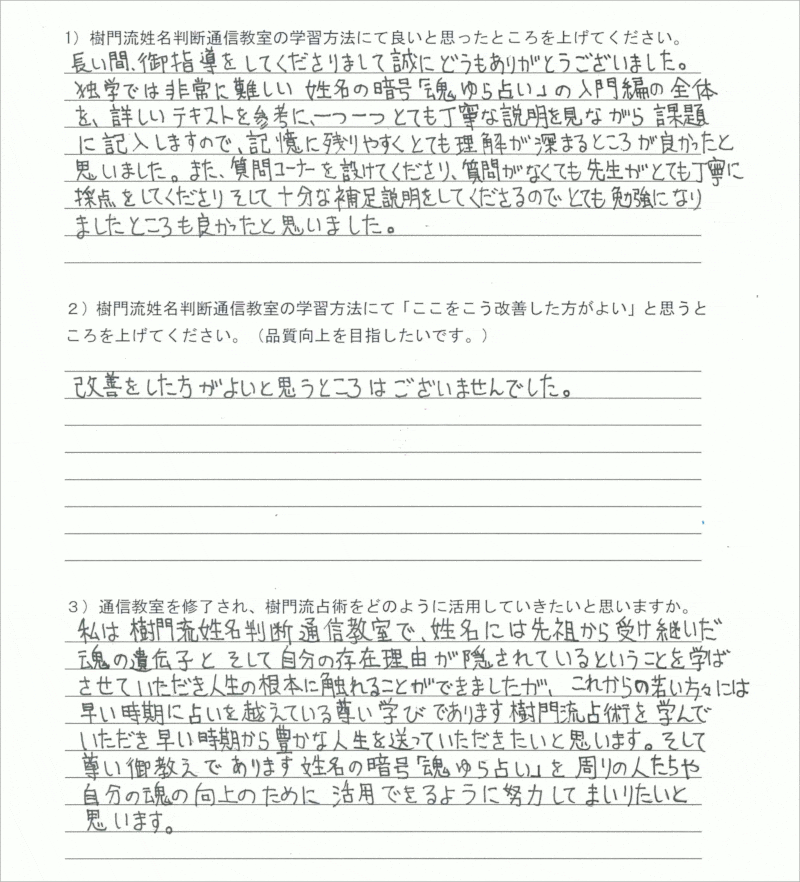 1）樹門流姓名判断通信教室の学習方法にて良いと思ったところを上げてください。
長い間、御指導をしてくださりまして誠にどうもありがとうございました。
独学では非常に難しい姓名の暗号「魂ゆら占い」の入門編の全体
を、詳しいテキストを参考に、一つ一つとても丁寧な説明を見ながら課題
に記入しますので、記憶に残りやすくとても理解が深まるところが良かったと
思いました。また、質問コーナーを設けてくださり、質問がなくても先生がとても丁寧に
採点をしてくださりそして十分な補足説明をしてくださるのでとても勉強になり
ましたところも良かったと思いました。
2）樹門流姓名判断通信教室の学習方法にて「ここをこう改善した方がよい」と思うと
ころを上げてください。（品質向上を目指したいです。）
改善をした方がよいと思うところはございませんでした。
3）通信教室を修了され、樹門流占術をどのように活用していきたいと思いますか。
私は樹門流姓名判断通信教室で、姓名には先祖から受け継いだ
魂の遺伝子とそして自分の存在理由が隠されているということを学ば
させていただき人生の根本に触れることができましたが、これからの若い方々には
早い時期に占いを越えている尊い学びであります樹門流占術を学んで
いただき早い時期から豊かな人生を送っていただきたいと思います。そして
尊い御教えであります姓名の暗号「魂ゆら占い」を周りの人たちや
自分の魂の向上のために活用できるように努力してまいりたいと
思います。